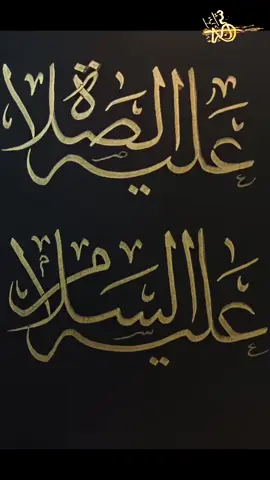 عليه الصلاة
عليه السلام